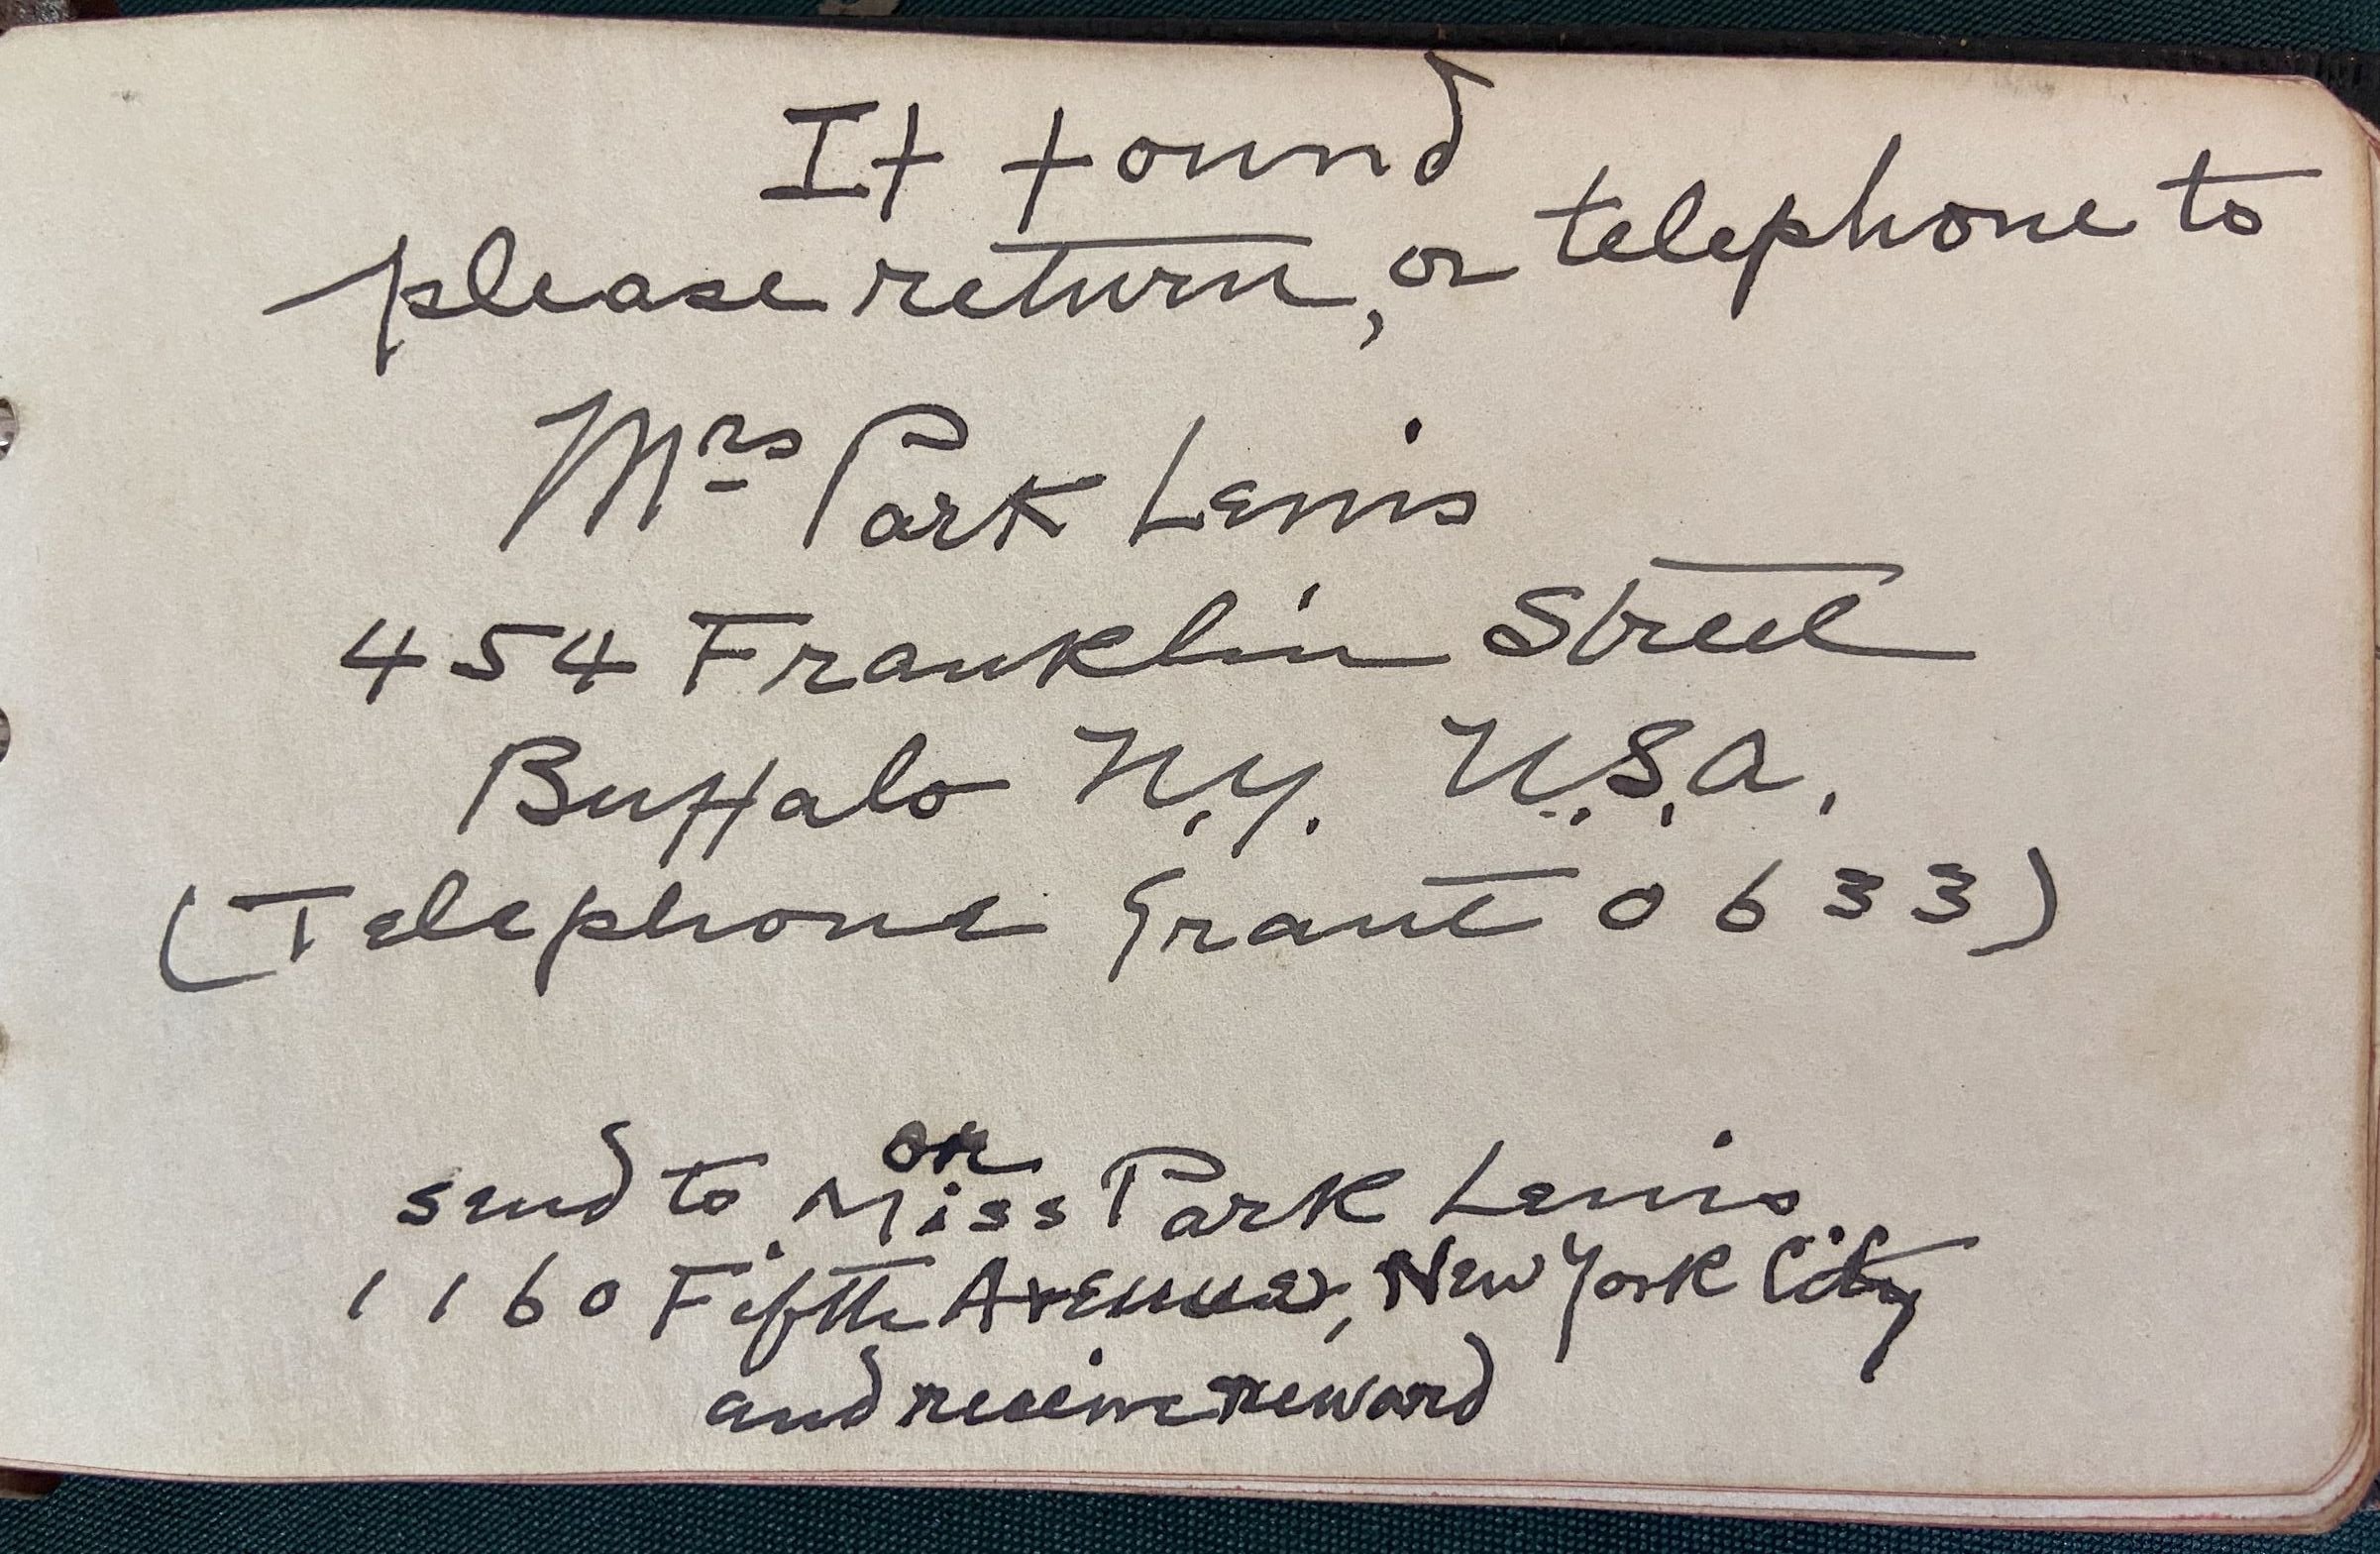 If found
please return, or telephone to
Mrs Park Lewis
454 Franklin Street
Buffalo N.Y. U.S.A.
(Telephone Grant 0633)
or
send to Miss Park Lewis
1160 Fifth Avenue, New York City
and receive reward